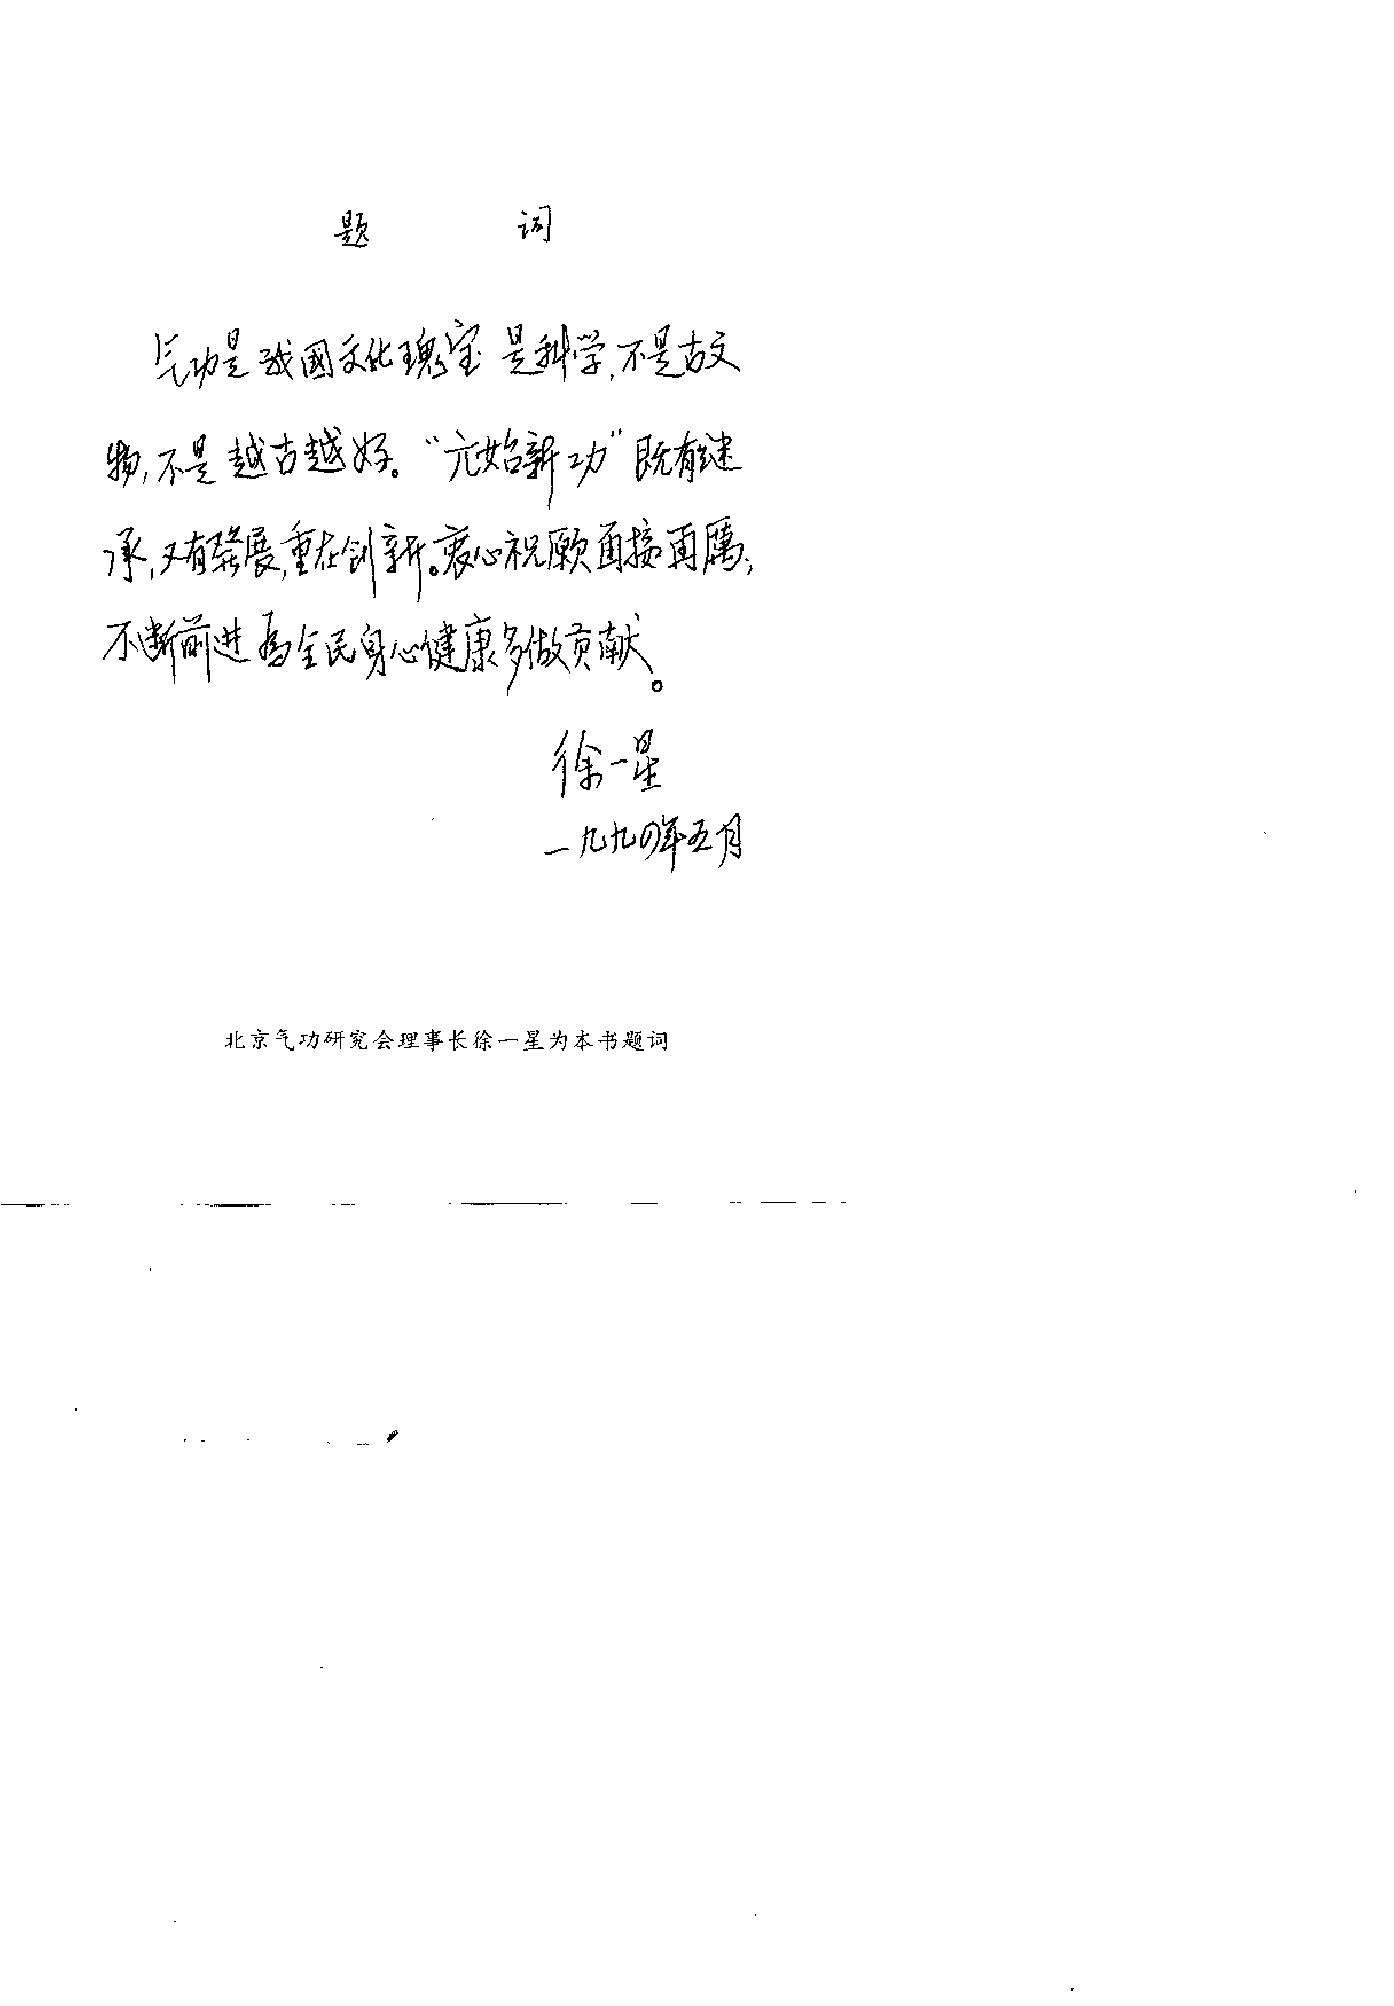 题 词
气功是我國文化瑰宝 是科学,不是古文
物,不是越古越好。“元始新功”既有继
承,又有發展,重在创新。衷心祝愿再接再厲,
不断前进為全民身心健康多做贡献。
徐一星
一九九四年五月
北京气功研究会理事长徐一星为本书题词